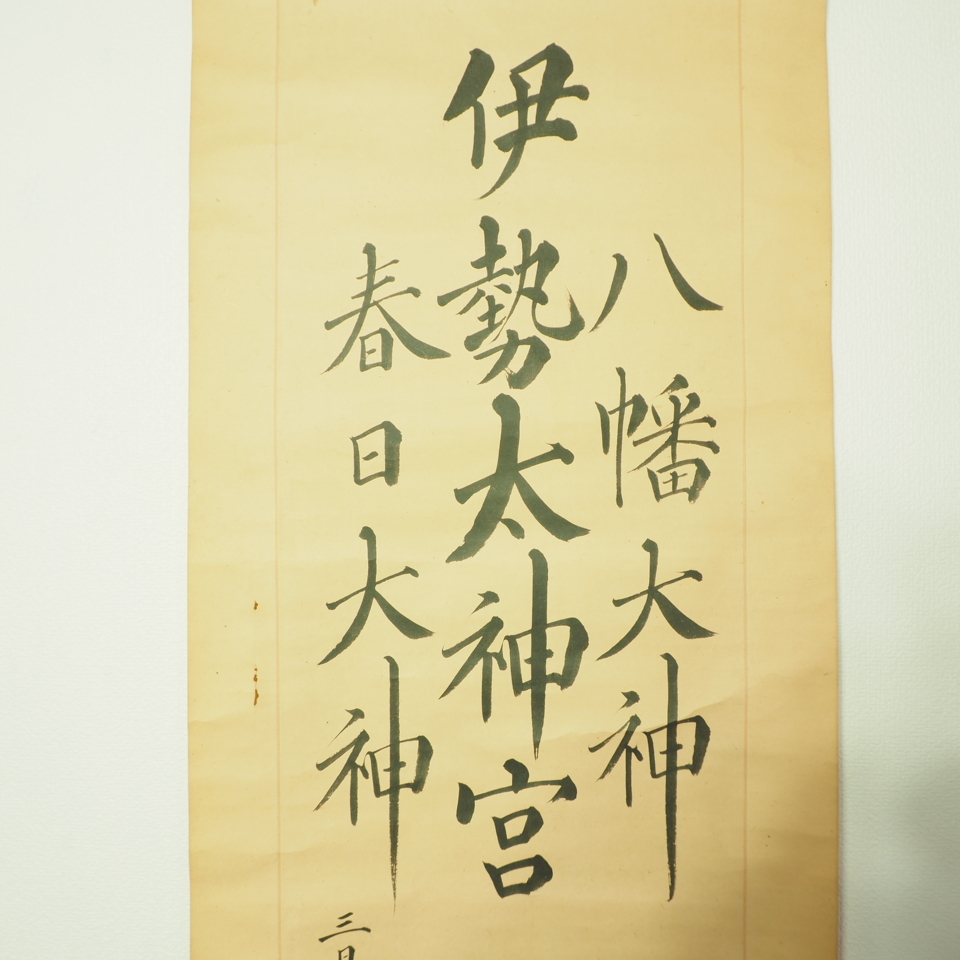 八幡大神
伊勢太神宮
春日大神
三